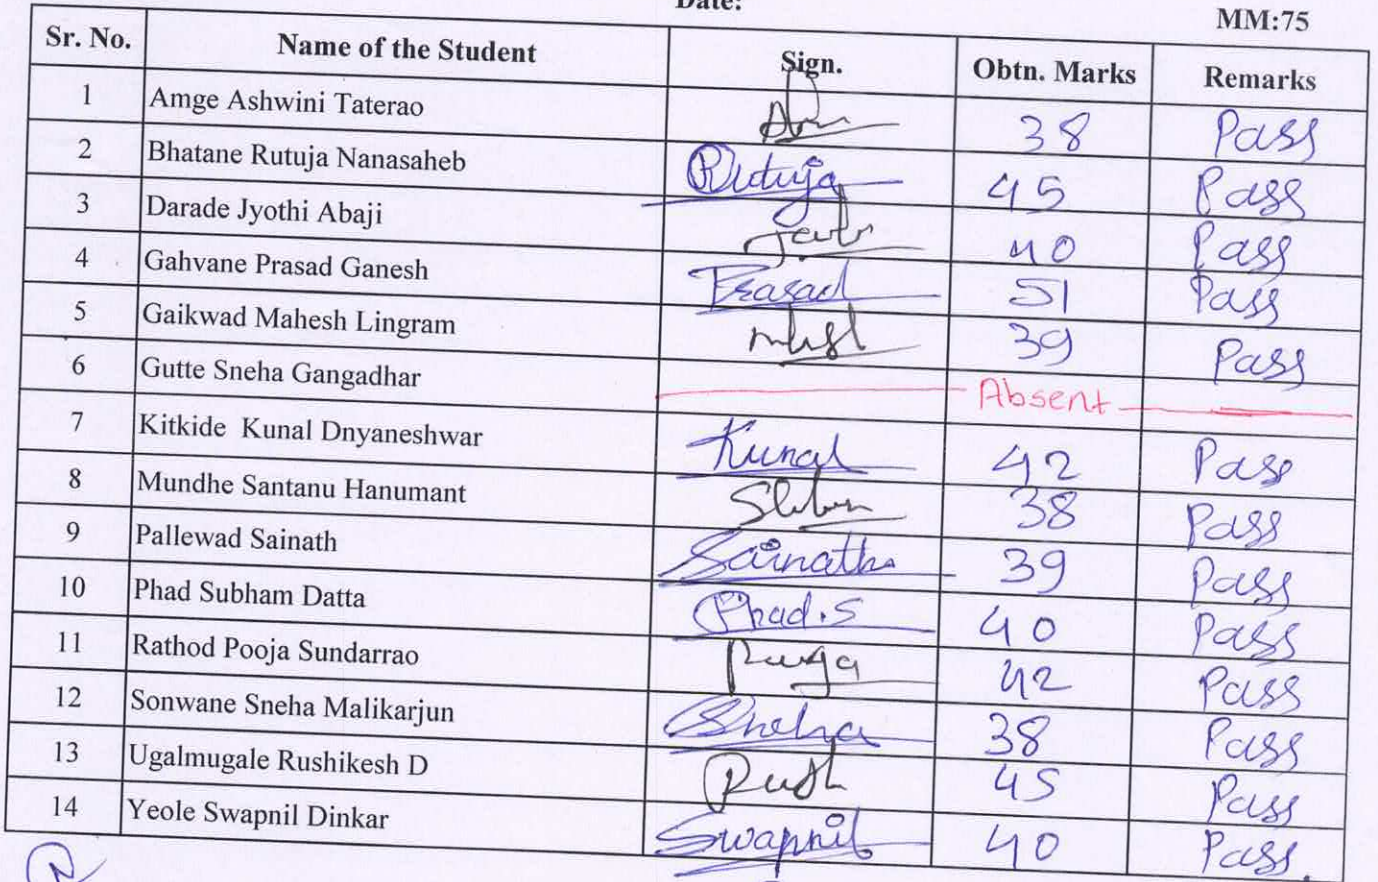 Date:
MM:75
Sr. No. Name of the Student Sign. Obtn. Marks Remarks
1 Amge Ashwini Taterao 38 Pass
2 Bhatane Rutuja Nanasaheb Rutuja 45 Pass
3 Darade Jyothi Abaji 40 Pass
4 Gahvane Prasad Ganesh Prasad 51 Pass
5 Gaikwad Mahesh Lingram 39 Pass
6 Gutte Sneha Gangadhar Absent
7 Kitkide Kunal Dnyaneshwar Kunal 42 Pass
8 Mundhe Santanu Hanumant 38 Pass
9 Pallewad Sainath Sainath 39 Pass
10 Phad Subham Datta Phad.S 40 Pass
11 Rathod Pooja Sundarrao 42 Pass
12 Sonwane Sneha Malikarjun Sneha 38 Pass
13 Ugalmugale Rushikesh D Rush 45 Pass
14 Yeole Swapnil Dinkar Swapnil 40 Pass.